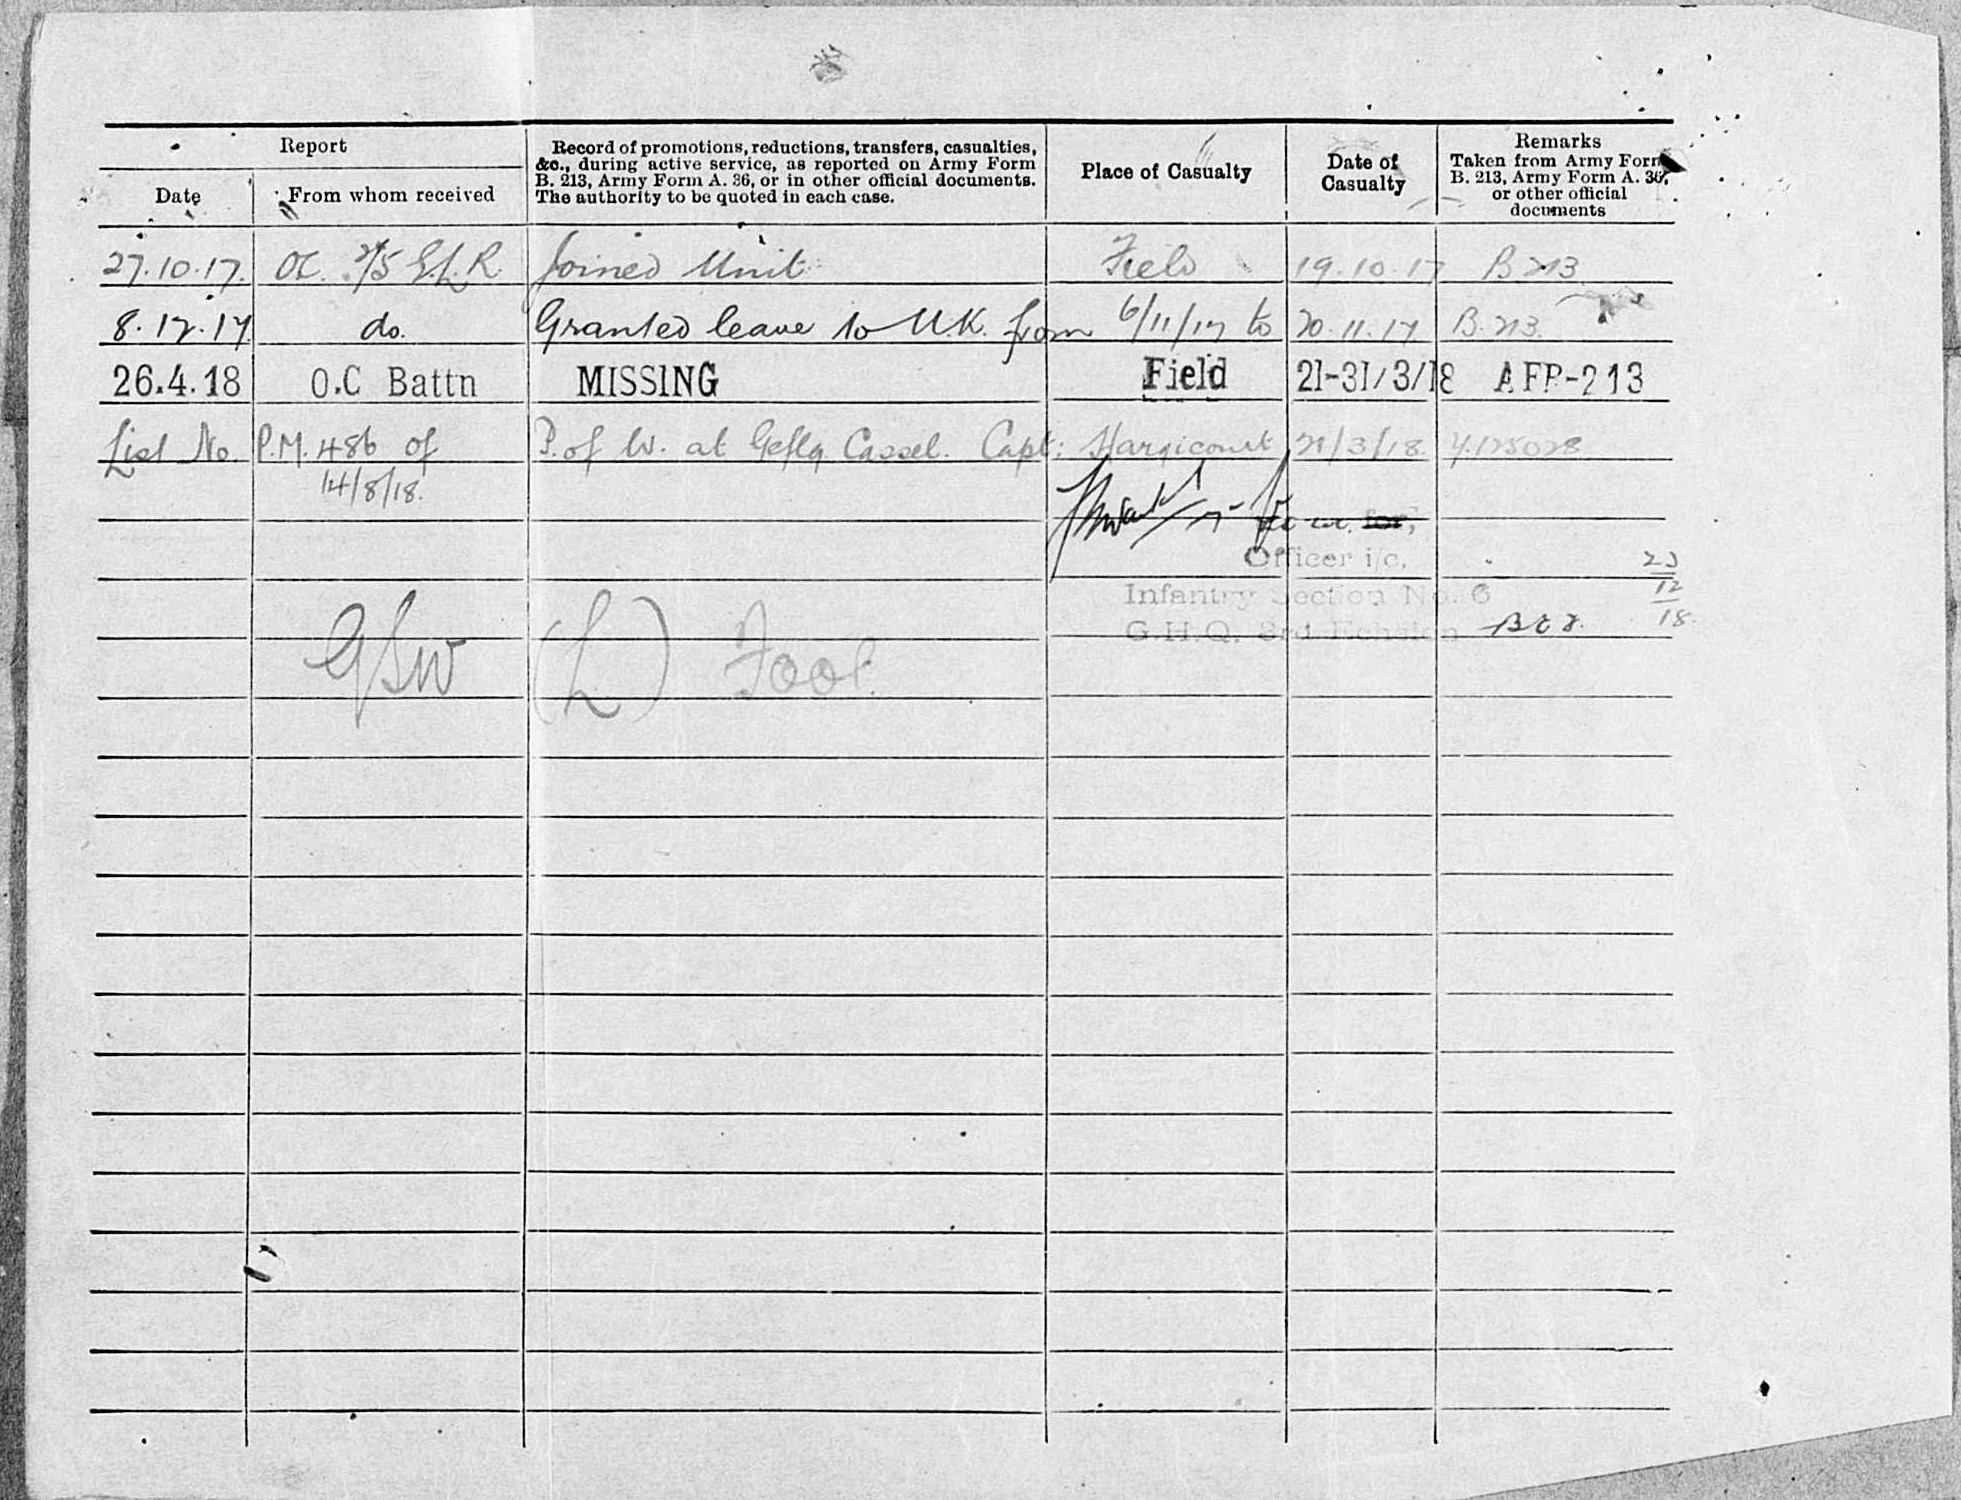 Report
Date
From whom received
Record of promotions, reductions, transfers, casualties,
&c., during active service, as reported on Army Form
B. 213, Army Form A. 36, or in other official documents.
The authority to be quoted in each case.
Place of Casualty
Date of
Casualty
Remarks
Taken from Army Form
B. 213, Army Form A. 36,
or other official
documents
27.10.17. OC. 2/5 E.L.R. Joined Unit Field 19.10.17 B213
8.12.17 do. Granted leave to U.K. from 6/11/17 to 20.11.17 B.213.
26.4.18 O.C Battn MISSING Field 21-31/3/18 AFB-213
List No. P.M. 486 of P. of W. at Geflg Cassel. Capt: Hargicourt 21/3/18.
14/8/18.
for,
Officer i/c,
Infantry Section No. 6
G.H.Q. 3rd Echelon
23
12
18.
GSW (L) Foot.